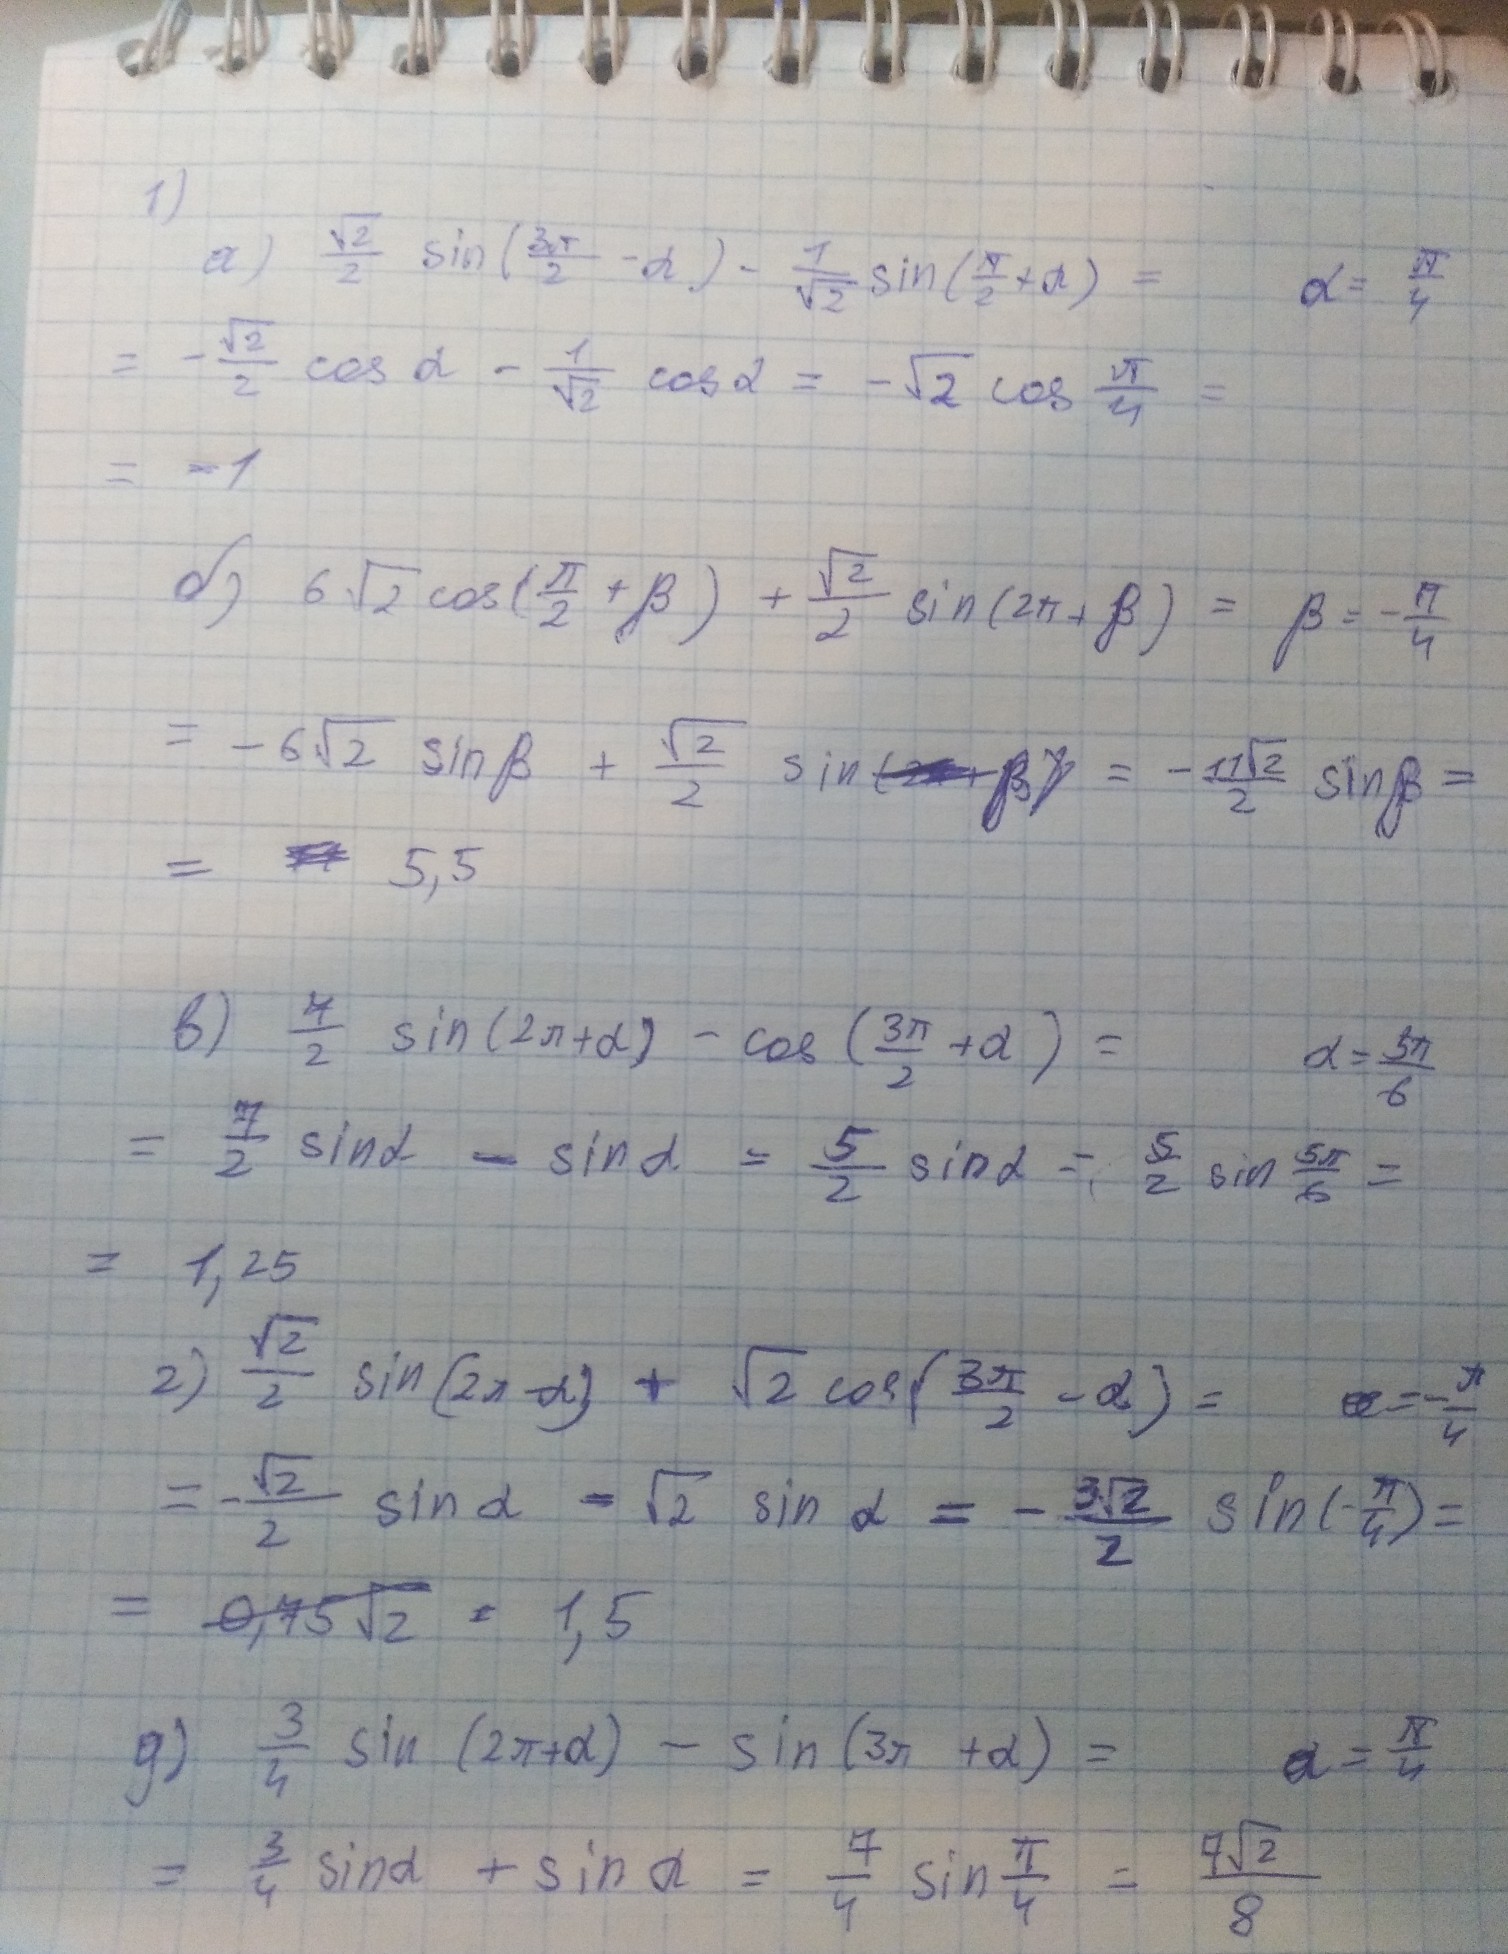 1)
а) √2/2 sin(3π/2 - α) - 1/√2 sin(π/2 + α) = α = π/4
= -√2/2 cos α - 1/√2 cos α = -√2 cos π/4 =
= -1
б) 6√2 cos(π/2 + β) + √2/2 sin(2π + β) = β = -π/4
= -6√2 sin β + √2/2 sin β = -11√2/2 sin β =
= 5,5
в) 7/2 sin(2π + α) - cos(3π/2 + α) = α = 5π/6
= 7/2 sin α - sin α = 5/2 sin α = 5/2 sin 5π/6 =
= 1,25
г) √2/2 sin(2π - α) + √2 cos(3π/2 - α) = α = -π/4
= -√2/2 sin α - √2 sin α = -3√2/2 sin(-π/4) =
= 0,75√2 = 1,5
д) 3/4 sin (2π + α) - sin (3π + α) = α = π/4
= 3/4 sin α + sin α = 7/4 sin π/4 = 7√2/8